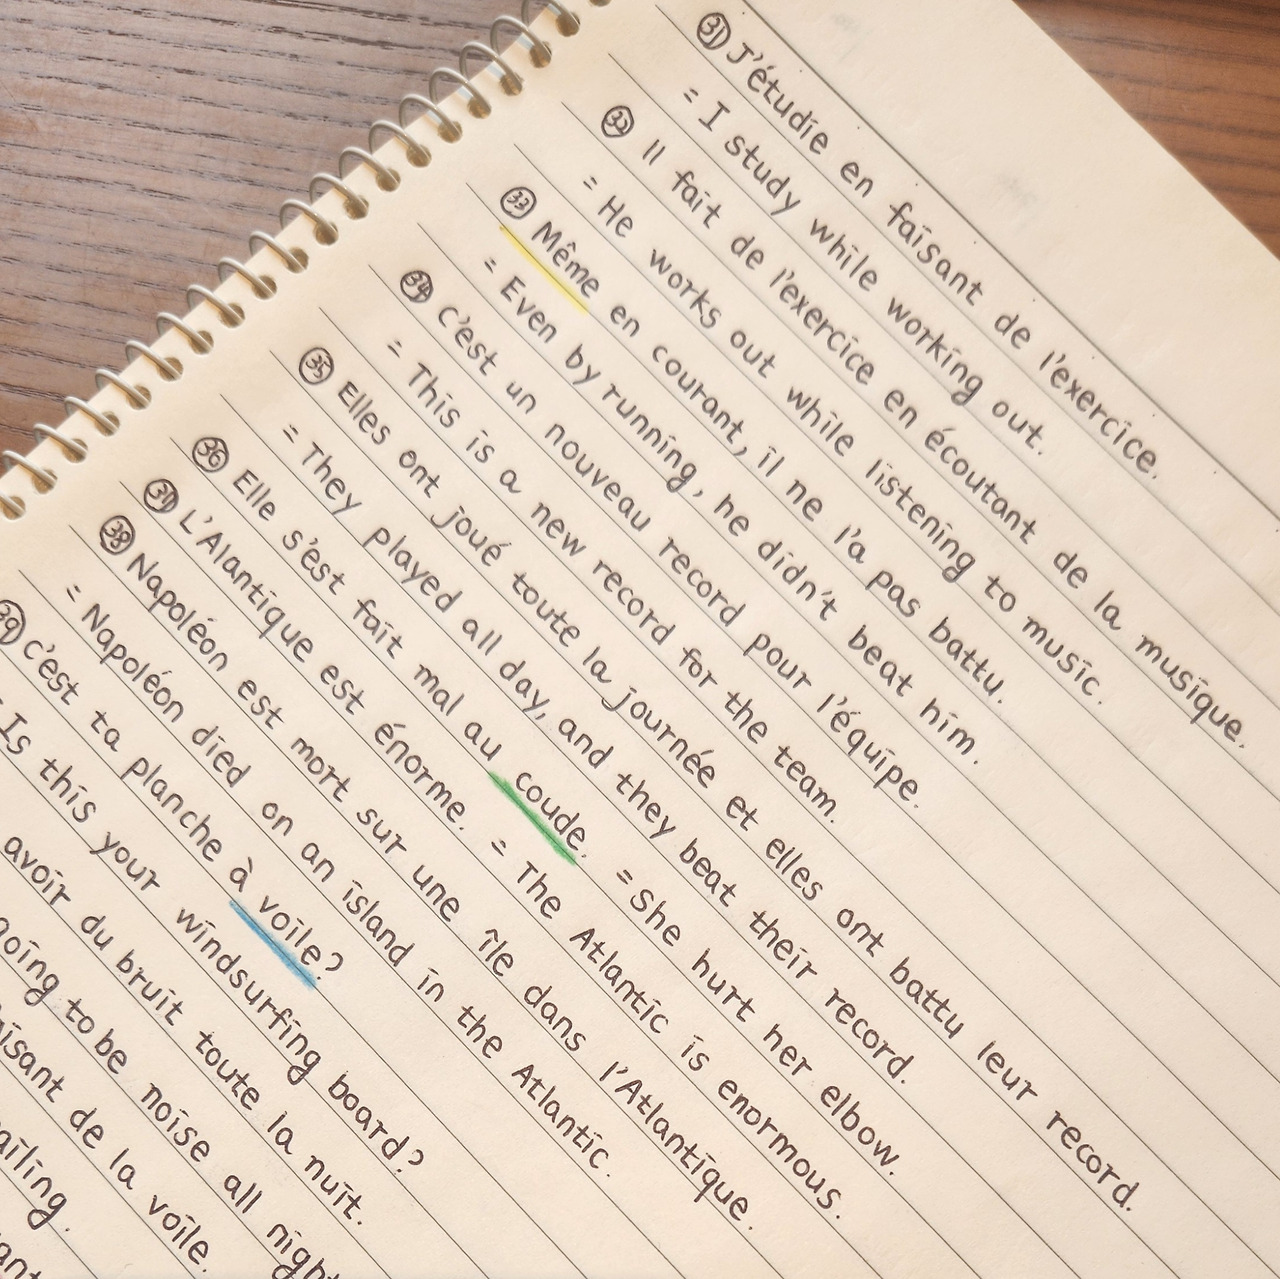 31 J'étudie en faisant de l'exercice.
= I study while working out.
32 Il fait de l'exercice en écoutant de la musique.
= He works out while listening to music.
33 Même en courant, il ne l'a pas battu.
= Even by running, he didn't beat him.
34 C'est un nouveau record pour l'équipe.
= This is a new record for the team.
35 Elles ont joué toute la journée et elles ont battu leur record.
= They played all day, and they beat their record.
36 Elle s'est fait mal au coude. = She hurt her elbow.
37 L'Alantique est énorme. = The Atlantic is enormous.
38 Napoléon est mort sur une île dans l'Atlantique.
= Napoléon died on an island in the Atlantic.
39 C'est ta planche à voile?
= Is this your windsurfing board?
avoir du bruit toute la nuit.
going to be noise all night
de la voile.